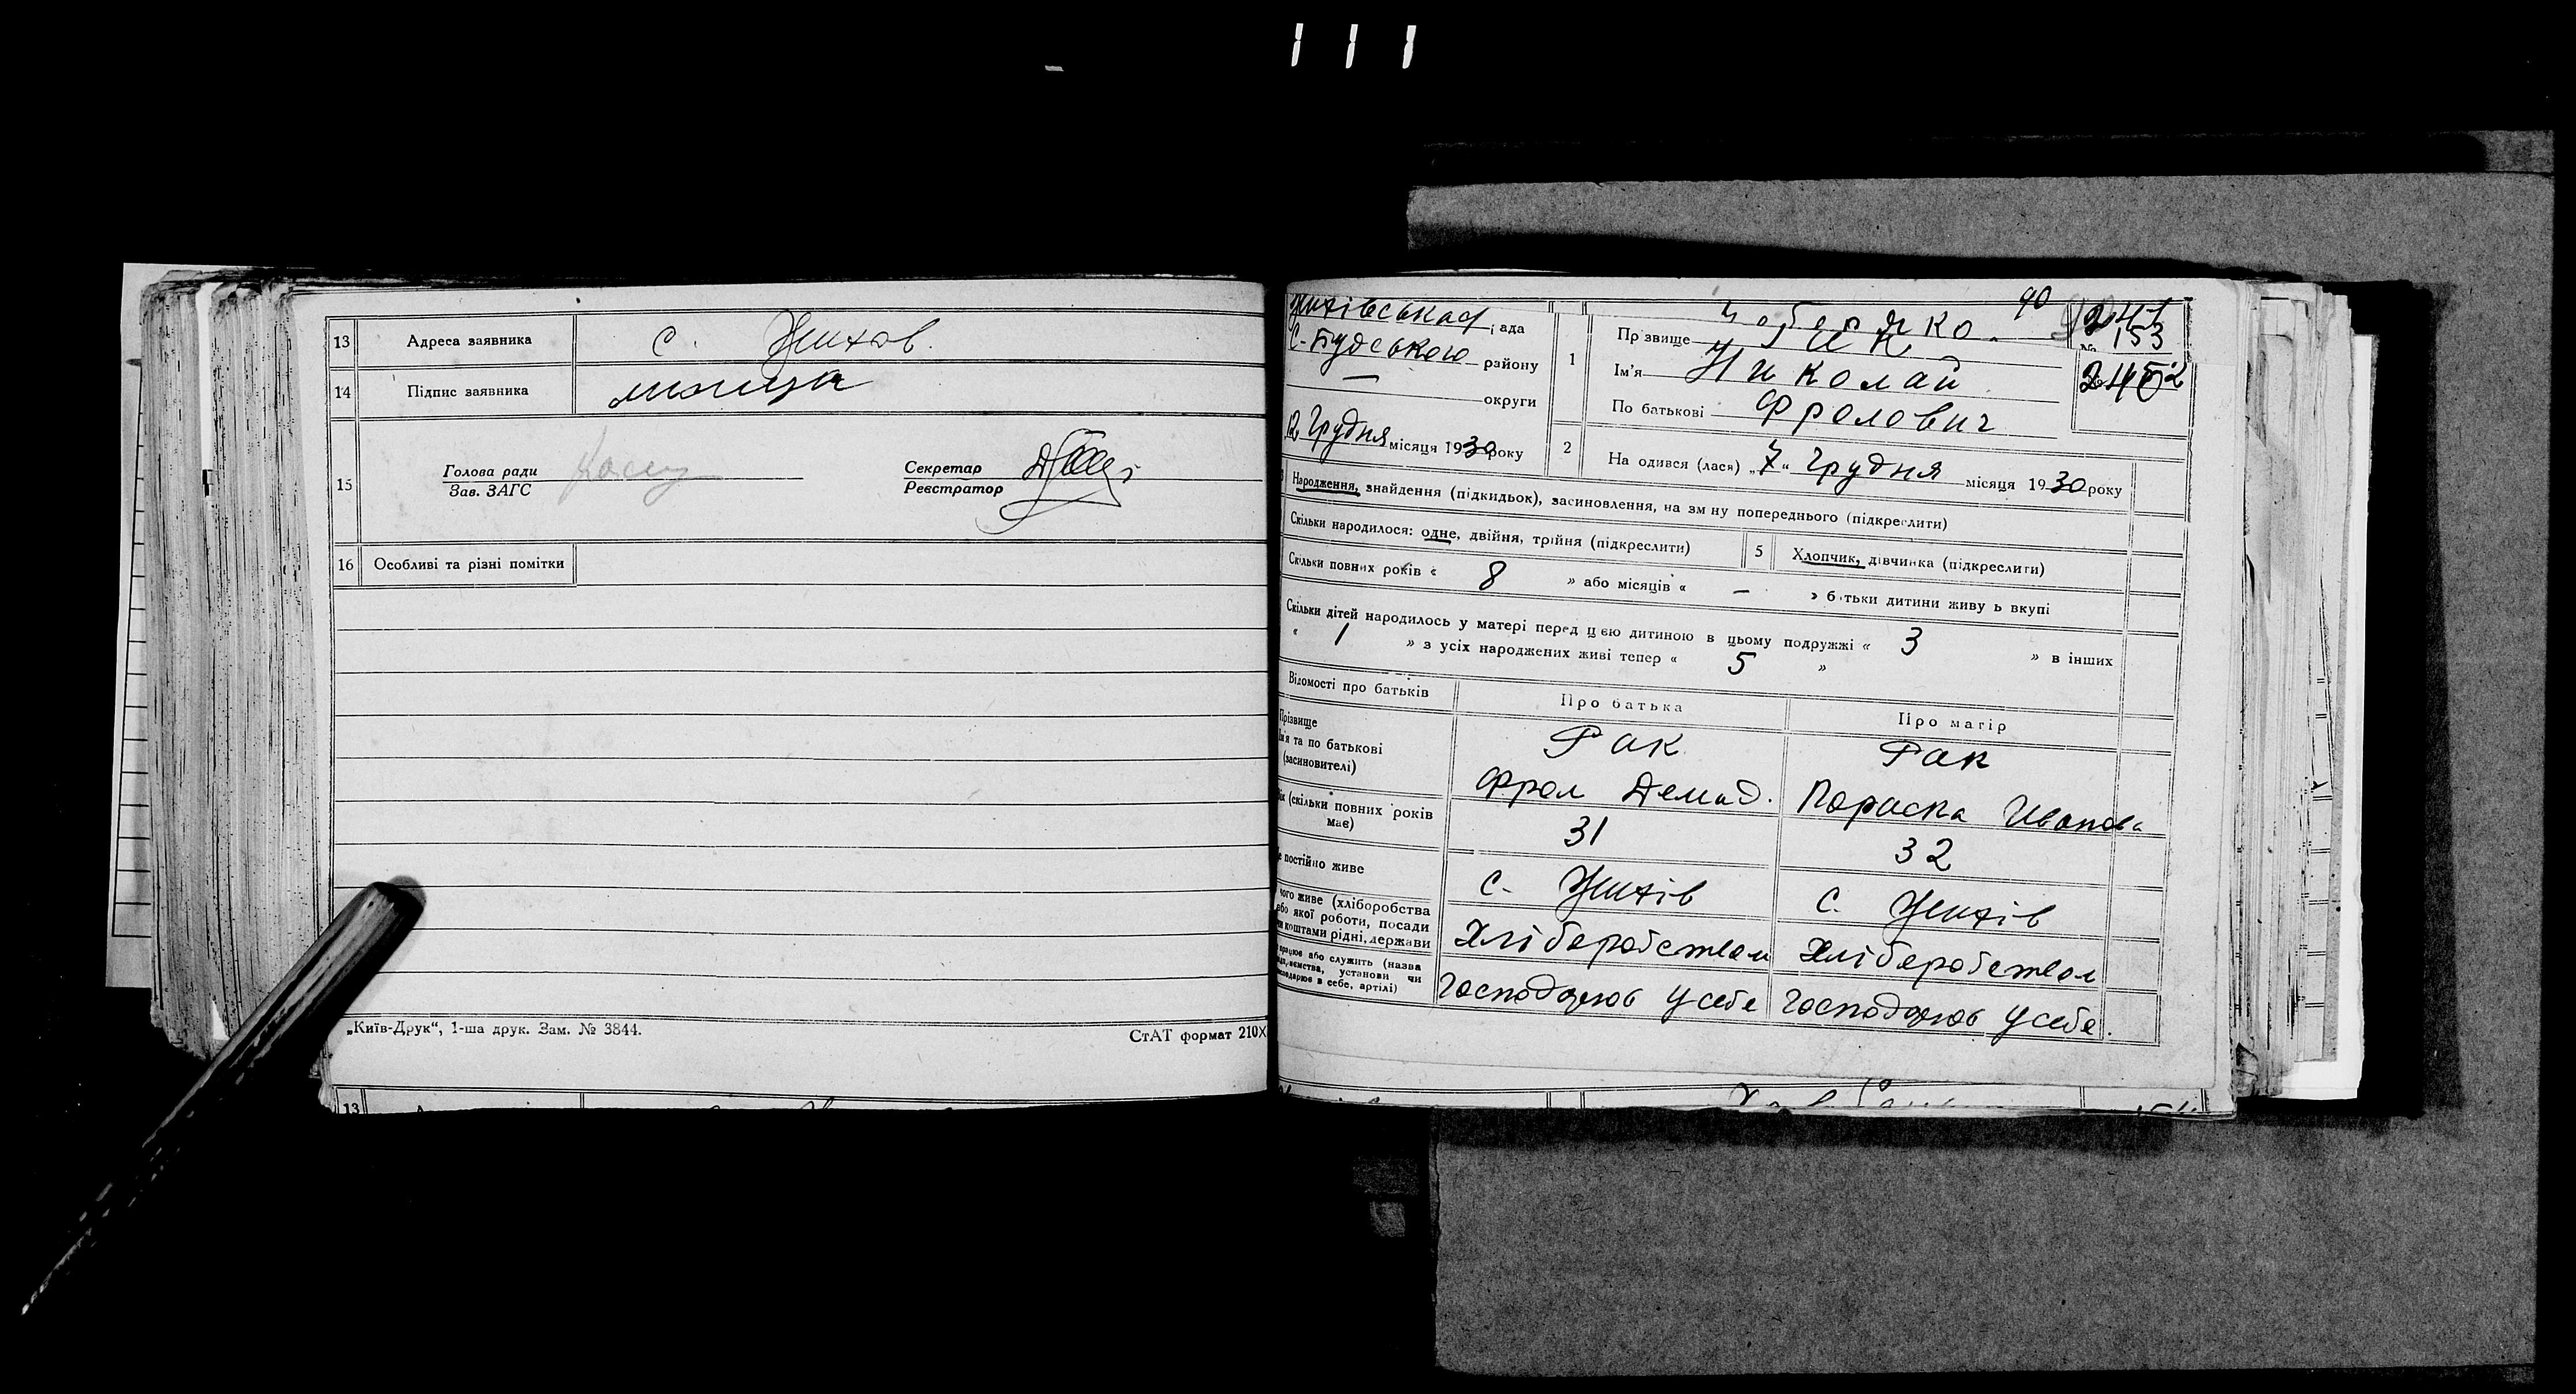 13 Адреса заявника с. Жихов.
14 Підпис заявника
15 Голова ради
Зав. ЗАГС
Секретар
Реєстратор
16 Особливі та різні помітки
„Київ-Друк“, 1-ша друк. Зам. № 3844.
СтАТ формат 210Х
13
Жихівська рада
С-Будського району
— округи
12 Грудня місяця 1930 року
1 Прізвище
90
241
№ 153
Ім'я Николай
По батькові Фролович
2 Народився (лася) „7“ Грудня місяця 1930 року
Народження, знайдення (підкидьок), засиновлення, на зміну попереднього (підкреслити)
Скільки народилося: одне, двійня, трійня (підкреслити) 5 Хлопчик, дівчинка (підкреслити)
Скільки повних років « 8 » або місяців « – » батьки дитини живуть вкупі
Скільки дітей народилось у матері перед цією дитиною в цьому подружжі « 3 » в інших
« 1 » з усіх народжених живі тепер « 5 »
Відомості про батьків Про батька Про матір
Прізвище
ім'я та по батькові
(засиновителі)
Рак
Фрол Демид.
Рак
Параска Иванова
Вік (скільки повних років
має)
31
32
Де постійно живе с. Жихів с. Жихів
чого живе (хліборобства
або якої роботи, посади
чи коштами рідні, держави
Хліборобством Хліборобством
працює або служить (назва
установи чи
в себе, артілі)
Господарює у себе Господарює у себе.